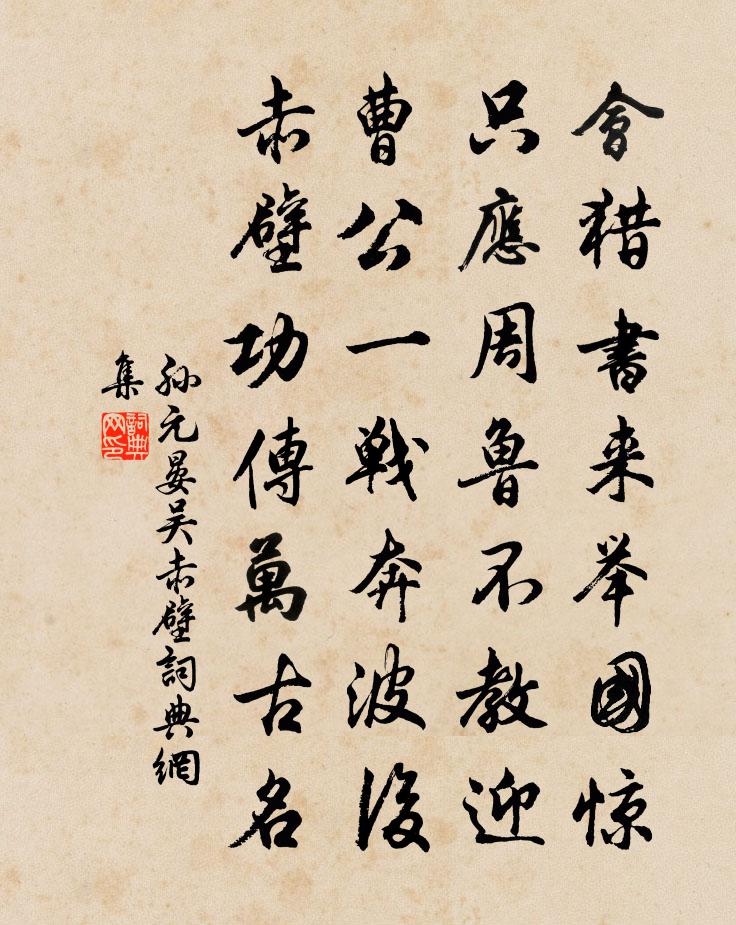 會猎書来举國惊
只應周魯不教迎
曹公一戦奔波後
赤壁功傳萬古名
孙元晏吴赤壁詞典網
集
詞典
网印